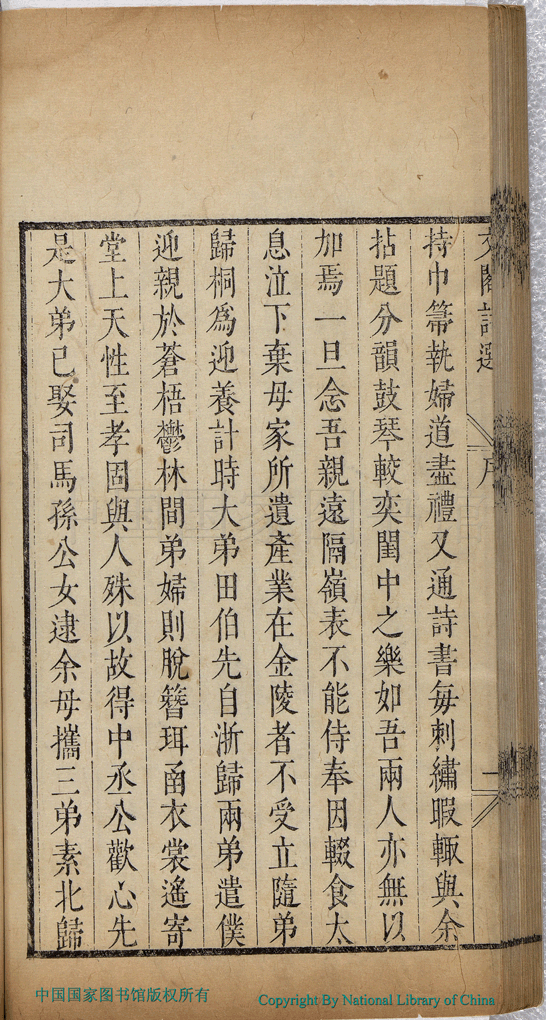 文閣詩選 序 一
持巾箒執婦道盡禮又通詩書每刺繡暇輒與余
拈題分韻鼓琴較奕閨中之樂如吾兩人亦無以
加焉一旦念吾親遠隔嶺表不能侍奉因輟食太
息泣下棄母家所遺產業在金陵者不受立隨弟
歸桐為迎養計時大弟田伯先自浙歸兩弟遣僕
迎親於蒼梧鬱林間弟婦則脫簪珥函衣裳遙寄
堂上天性至孝固與人殊以故得中丞公歡心先
是大弟已娶司馬孫公女逮余母攜三弟素北歸
中国国家图书馆版权所有
Copyright By National Library of China